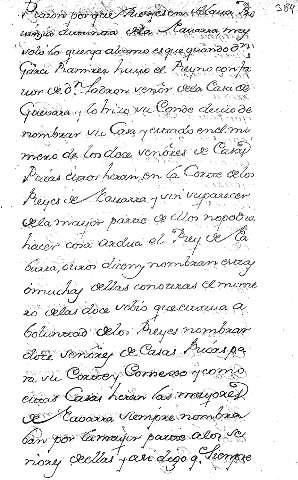 384
Razon porque Reyes en alguna Pro
vincia de Navarra muy
es que quando Dn
Garci Ramirez huvo el Reyno con fa
vor de Dn. Ladron señor de la Casa de
Guevara, y lo hizo su Conde dexo de
nombrar su Casa, y entrando en el nu
mero de los doce señores de Casas
Ricas eran en la Corte de los
Reyes de Navarra y sin su parecer
de la mayor parte de ellos no podia
hacer cosa ardua el Rey de Na
barra, otros dicen y nombran otras
muchas de ellas con otras el nume
ro de las doce
boluntad de los Reyes nombrar
doce señores de Casas Ricas pa
ra su Corte y Consexo y como
estas Casas heran las mayores
de Navarra siempre nombra
ban por la mayor parte a los se
ñores de ellas y asi digo qe. siempre